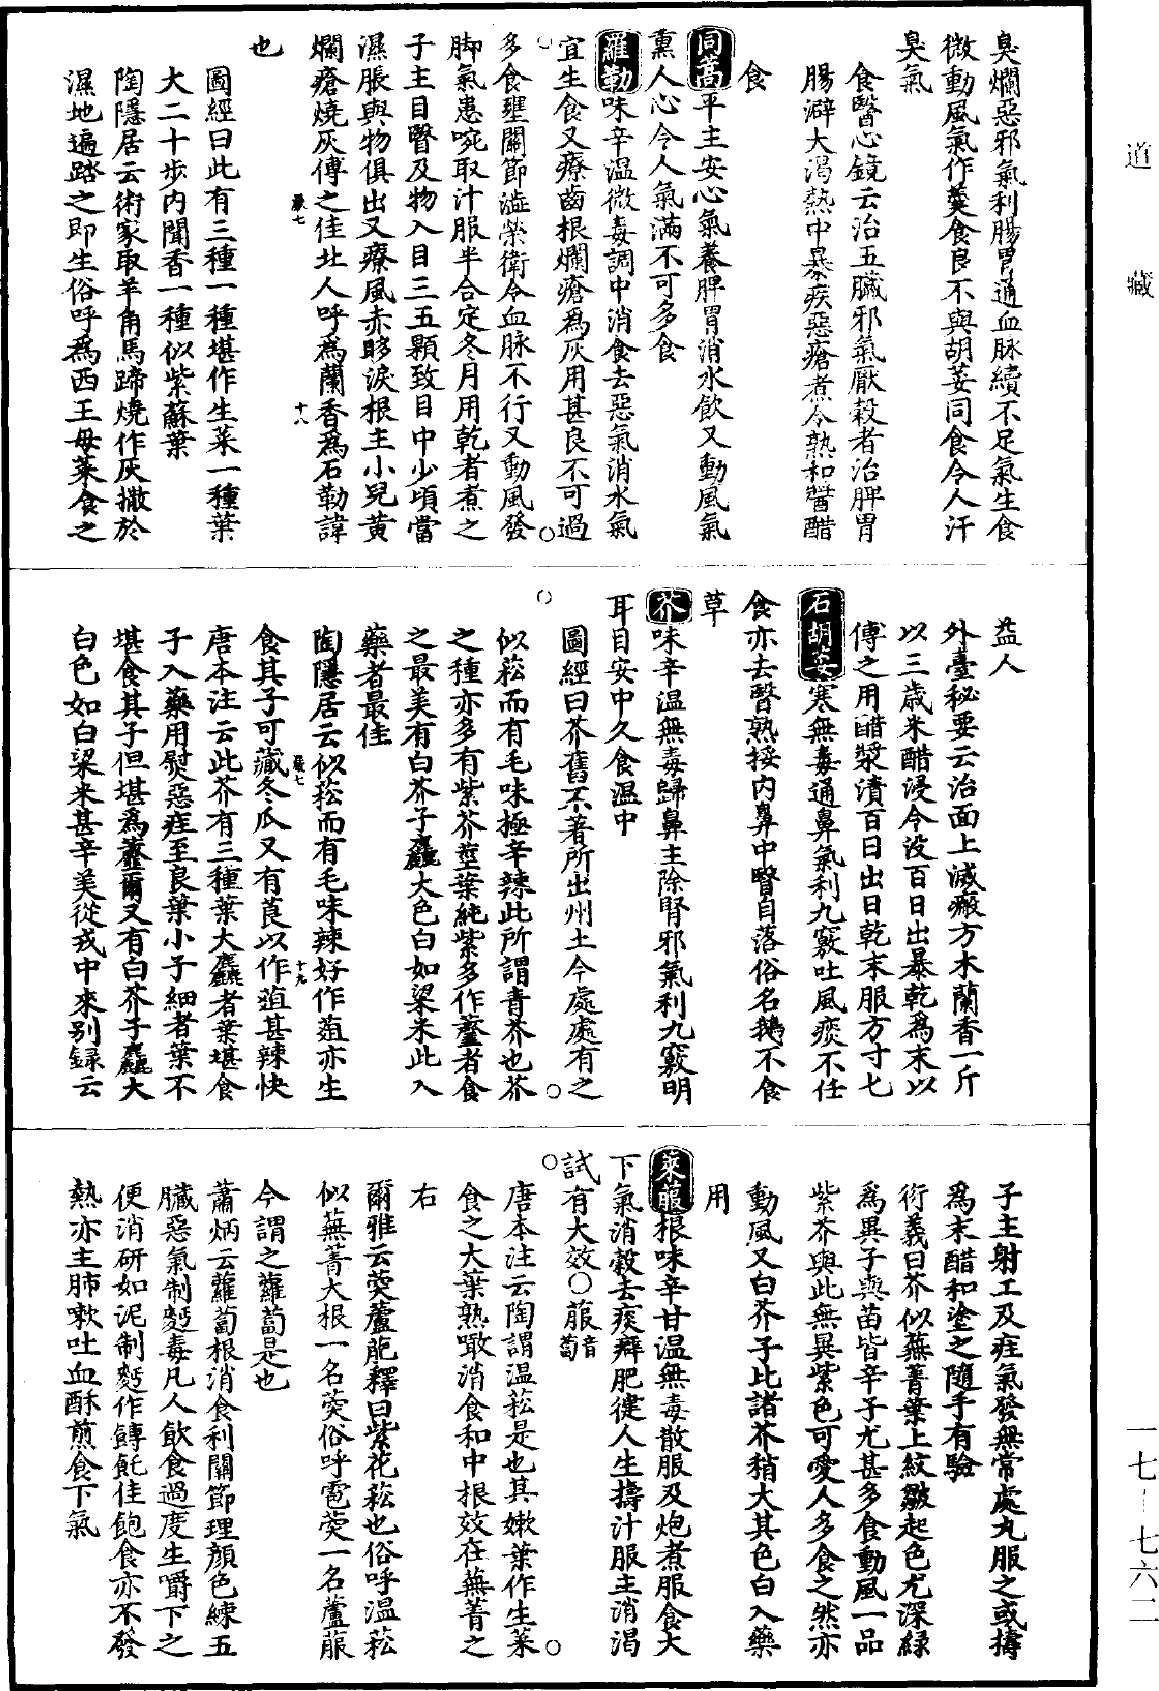 道藏
臭爛惡邪氣利腸胃通血脉續不足氣生食
微動風氣作羹食良不與胡荽同食令人汗
臭氣
食醫心鏡云治五臟邪氣厭穀者治脾胃
腸澼大渴熱中暴疾惡瘡煮令熟和醬醋
食
同蒿平主安心氣養脾胃消水飲又動風氣
熏人心令人氣滿不可多食
羅勒味辛溫微毒調中消食去惡氣消水氣
宜生食又療齒根爛瘡為灰用甚良不可過
多食壅關節澁榮衛令血脉不行又動風發
脚氣患啘取汁服半合定冬月用乾者煮之
子主目瞖及物入目三五顆致目中少頃當
濕脹與物俱出又療風赤眵淚根主小兒黃
爛瘡燒灰傅之佳北人呼為蘭香為石勒諱
也
嚴七
十八
圖經曰此有三種一種堪作生菜一種葉
大二十步内聞香一種似紫蘇葉
陶隱居云術家取羊角馬蹄燒作灰撒於
濕地遍踏之即生俗呼為西王母菜食之
益人
外臺秘要云治面上滅瘢方木蘭香一斤
以三歲米醋浸令没百日出暴乾為末以
傅之用醋漿漬百日出日乾末服方寸匕
石胡荽寒無毒通鼻氣利九竅吐風痰不任
食亦去瞖熟挼内鼻中瞖自落俗名鵝不食
草
芥味辛溫無毒歸鼻主除腎邪氣利九竅明
耳目安中久食溫中
圖經曰芥舊不著所出州土今處處有之
似菘而有毛味極辛辣此所謂青芥也芥
之種亦多有紫芥莖葉純紫多作虀者食
之最美有白芥子麤大色白如粱米此入
藥者最佳
陶隱居云似菘而有毛味辣好作葅亦生
食其子可藏冬瓜又有莨以作葅甚辣快
嚴七
十九
唐本注云此芥有三種葉大麤者葉堪食
子入藥用熨惡疰至良葉小子細者葉不
堪食其子但堪為虀爾又有白芥子麤大
白色如白粱米甚辛美從戎中來别録云
子主射工及疰氣發無常處丸服之或擣
為末醋和塗之隨手有驗
衍義曰芥似蕪菁葉上紋皺起色尤深緑
為異子與苗皆辛子尤甚多食動風一品
紫芥與此無異紫色可愛人多食之然亦
動風又白芥子比諸芥稍大其色白入藥
用
萊菔根味辛甘溫無毒散服及炮煮服食大
下氣消穀去痰癖肥健人生擣汁服主消渴
試有大效○菔音蔔
唐本注云陶謂溫菘是也其嫩葉作生菜
食之大葉熟噉消食和中根效在蕪菁之
右
爾雅云葖蘆萉釋曰紫花菘也俗呼溫菘
似蕪菁大根一名葖俗呼雹葖一名蘆菔
今謂之蘿蔔是也
蕭炳云蘿蔔根消食利關節理顏色練五
臟惡氣制麪毒凡人飲食過度生嚼下之
便消研如泥制麪作餺飥佳飽食亦不發
熱亦主肺嗽吐血酥煎食下氣
一七—七六二